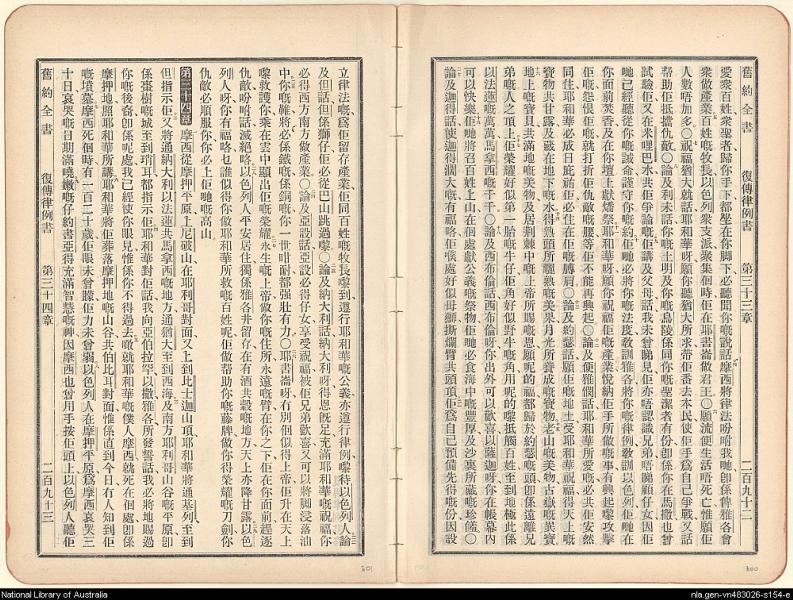 舊約全書 復傳律例書 第三十三章 二百九十二
愛衆百姓、衆聖者歸你手下、都坐在你脚下、必聽聞你嘅說話、摩西將律法吩咐我哋、卽係傳雅各會
衆做產業、百姓嘅牧長、以色列衆支派、聚集個時、佢在耶書崙做君王、〇願流便生活唔死亡、惟願佢
人數唔加多、〇祝福猶大就話、耶和華呀、願你聽猶大所求、帶佢番去本民、使佢手爲自己爭戰、又話
幫助佢抵擋仇敵、〇論及利未話、你嘅土明及你嘅烏陵、係同你嘅聖潔者有份、卽係你在馬撒也曾
試驗佢、又在米哩巴水共佢爭論嘅、佢講及父母話、我未曾睇見佢、亦唔認識兄弟、唔睇顧仔女、因佢
哋已經聽從你嘅誡命、謹守你嘅約、佢哋必將你嘅法度、敎訓雅各、將你嘅律例、敎訓以色列、佢哋在
你面前焚香、及在你壇上獻燔祭、耶和華呀、願你賜福佢嘅產業、悅納佢手所做嘅事、有興起嚟攻擊
佢嘅、怨恨佢嘅、就打折佢仇敵嘅腰、等佢不能再興起、〇論及便雅憫話、耶和華所愛嘅、必共佢安然
同住、耶和華必成日庇祐佢、必住在佢嘅膊肩、〇論及約瑟話、願佢嘅地土、受耶和華祝福、得天上嘅
寶物、共甘露、及藏在地下嘅水、得熱頭所曬熟嘅美果、月光所養成嘅寶物、老山嘅美物、古嶽嘅異寶
地上嘅寶貝、共滿地嘅美物、及居荆棘中嘅上帝所賜嘅恩、願呢的福都歸於約瑟嘅頭、卽係遠離兄
弟嘅人之頂上、佢榮耀好似第一胎嘅牛仔、佢角好似野牛嘅角、用呢的嚟抵觸百姓、至到地極、此係
以法蓮嘅萬萬、馬拿西嘅千千、〇論及西布倫話、西布倫呀、你出外可以歡喜、以薩迦呀、你在帳幕內
可以快樂、佢哋將召百姓上山、在個處獻公義嘅祭物、佢哋必食海中嘅豐厚、及沙裏所藏嘅珍儲、〇
論及迦得話、使迦得潤大嘅有福咯、佢喺處好似母獅、撕爛臂共頭頂、佢爲自己預備先得嘅份、因設
立律法嘅、爲佢留存產業、佢同百姓嘅牧長嚟到、遵行耶和華嘅公義、亦遵行律例嚟待以色列人、〇論
及但話、但係獅仔、佢必從巴山跳過嚟、〇論及納大利話、納大利呀、得恩旣足、充滿耶和華嘅祝福、你
必得西方南方做產業、〇論及亞設話、亞設必得仔女享受祝福、被佢兄弟歡喜、又可以將脚浸落油
中、你嘅鞾將必係鐵嘅、係銅嘅、你一世咁耐都强壯有力、〇耶書崙呀、冇別個似得上帝、佢升在天上
嚟救護你、乘在雲中、顯出佢嘅榮耀、永生嘅上帝、做你嘅住所、永遠嘅臂在你之下、佢在你面前趕逐
仇敵、吩咐話滅絕咯、以色列人平安居住、獨係雅各井留存在有酒共穀嘅地方、天上亦降甘露、以色
列人呀、你有福咯、乜誰似得你、做耶和華所救嘅百姓呢、佢做幫助你嘅籐牌、做你得榮耀嘅刀劍、你
仇敵必順服你、你必上佢哋嘅高山、
第三十四章 摩西從摩押平原上尼破山、在耶利哥對面、又上到比士迦山頂、耶和華將通基列至到
但指示佢、又將通納大利、以法蓮共馬拿西嘅地方、通猶大至到西海、及南方、耶利哥山谷嘅平原、卽
係棗樹嘅城、至到瑣耳、都指示佢、耶和華對佢話、我向亞伯拉罕以撒雅各所發誓、話我必將地賜過
你嘅後裔、卽係呢處、我已經使你眼見、惟係你不得過去、噉就耶和華嘅僕人摩西、就死在個處、卽係
摩押地、照耶和華所講、耶和華將佢葬落摩押地嘅山谷、共伯比耳對面、惟係直到今日、冇人知到佢
嘅墳墓、摩西死個時、有一百二十歲、佢眼未曾矇、佢力未曾弱、以色列人在摩押平原、爲摩西哀哭三
十日、哀哭嘅日期滿曉、嫩嘅仔約書亞、得充滿智慧嘅神、因摩西也曾用手按佢頭上、以色列人聽佢
舊約全書 復傳律例書 第三十四章 二百九十三
National Library of Australia
nla.gen-vn483026-s154-e